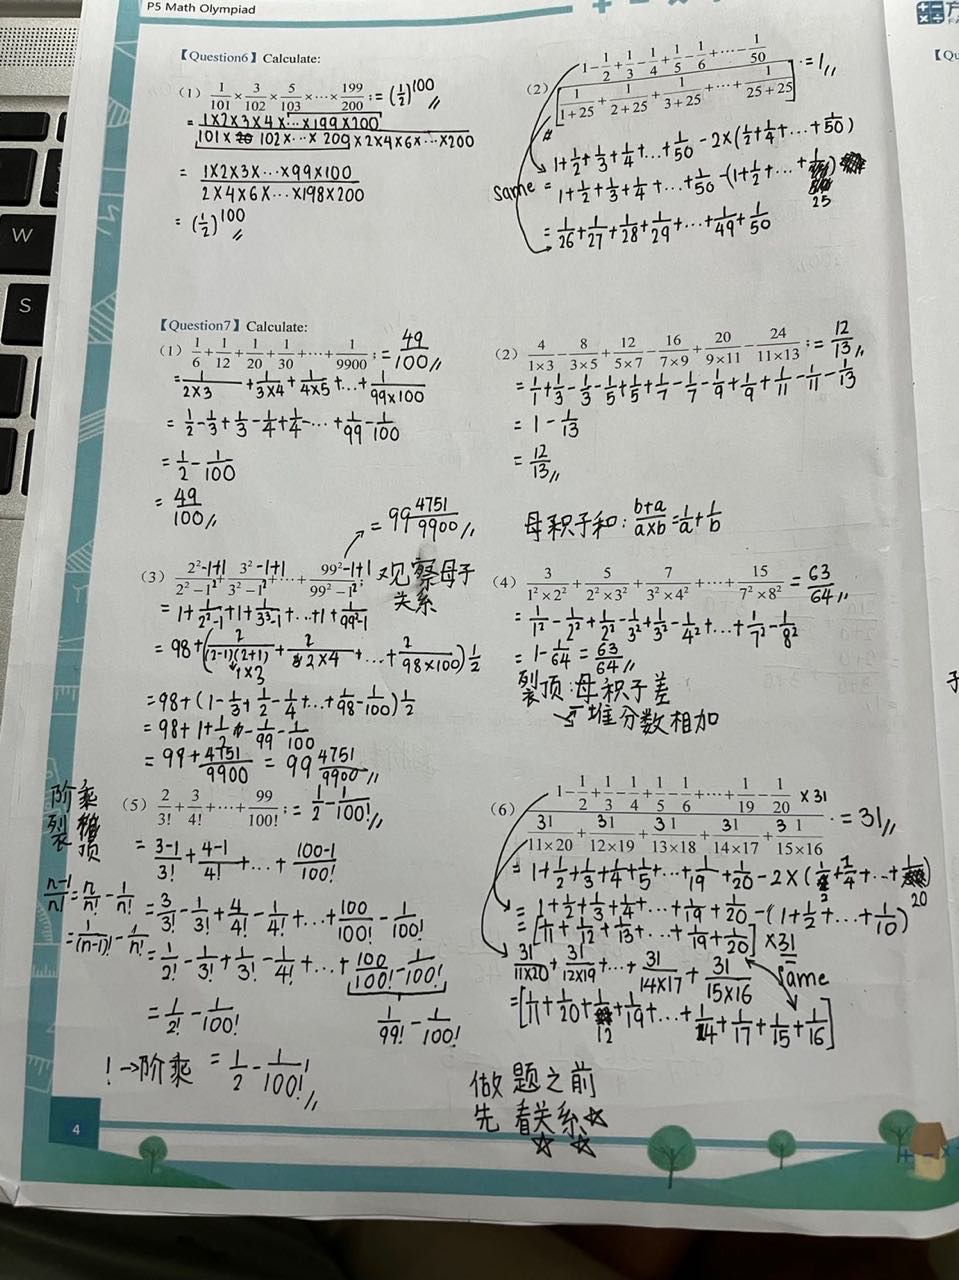 P5 Math Olympiad
【Question6】Calculate:
(1) 1/101 × 3/102 × 5/103 × ⋯ × 199/200 ; = (1/2)^100 //
= 1×2×3×4×⋯×199×200 / 101× 102×⋯× 200×2×4×6×⋯×200
= 1×2×3×⋯×99×100 / 2×4×6×⋯×198×200
= (1/2)^100 //
(2) 1 - 1/2 + 1/3 - 1/4 + 1/5 - 1/6 + ⋯ - 1/50 / [1/(1+25) + 1/(2+25) + 1/(3+25) + ⋯ + 1/(25+25)] . = 1 //
1+1/2+1/3+1/4+⋯+1/50 - 2×(1/2+1/4+⋯+1/50)
same = 1+1/2+1/3+1/4+⋯+1/50 -(1+1/2+⋯+1/25)
= 1/26+1/27+1/28+1/29+⋯+1/49+1/50
【Question7】Calculate:
(1) 1/6 + 1/12 + 1/20 + 1/30 + ⋯ + 1/9900 ; = 49/100 //
= 1/2×3 + 1/3×4 + 1/4×5 +⋯+ 1/99×100
= 1/2-1/3+1/3-1/4+1/4-⋯+1/99-1/100
= 1/2 - 1/100
= 49/100 //
(2) 4/1×3 - 8/3×5 + 12/5×7 - 16/7×9 + 20/9×11 - 24/11×13 ; = 12/13 //
= 1/1+1/3-1/3-1/5+1/5+1/7-1/7-1/9+1/9+1/11-1/11-1/13
= 1 - 1/13
= 12/13 //
母积子和: b+a/a×b = 1/a + 1/b
= 99 4751/9900 //
(3) 2²-1+1/2²-1² + 3²-1+1/3²-1² + ⋯ + 99²-1+1/99²-1² ; 观察母子
关系
= 1+1/2²-1+1+1/3²-1+⋯+1+1/99²-1
= 98+(2/(2-1)(2+1) + 2/2×4 +⋯+ 2/98×100)1/2
1×3
= 98+(1-1/3+1/2-1/4+⋯+1/98-1/100)1/2
= 98+1+1/2-1/99-1/100
= 99+4751/9900 = 99 4751/9900 //
(4) 3/1²×2² + 5/2²×3² + 7/3²×4² + ⋯ + 15/7²×8² = 63/64 //
= 1/1²-1/2²+1/2²-1/3²+1/3²-1/4²+⋯+1/7²-1/8²
= 1-1/64 = 63/64 //
裂顶:母积子差
→一堆分数相加
阶乘
裂项
(5) 2/3! + 3/4! + ⋯ + 99/100! ; = 1/2 - 1/100! //
= 3-1/3! + 4-1/4! +⋯+ 100-1/100!
n-1/n! = n/n! - 1/n!
= 1/(n-1)! - 1/n!
= 3/3!-1/3!+4/4!-1/4!+⋯+100/100!-1/100!
= 1/2!-1/3!+1/3!-1/4!+⋯+100/100!-1/100!
= 1/2! - 1/100!
1/99! - 1/100!
!→阶乘 = 1/2 - 1/100! //
(6) 1 - 1/2 + 1/3 - 1/4 + 1/5 - 1/6 + ⋯ + 1/19 - 1/20 ×31 / 31/11×20 + 31/12×19 + 31/13×18 + 31/14×17 + 31/15×16 . = 31 //
= 1+1/2+1/3+1/4+1/5+⋯+1/19+1/20 - 2×(1/2+1/4+⋯+1/20)
= 1+1/2+1/3+1/4+⋯+1/19+1/20 -(1+1/2+⋯+1/10)
= [1/11+1/12+1/13+⋯+1/19+1/20] ×31
31/11×20 + 31/12×19 +⋯+ 31/14×17 + 31/15×16 same
= [1/11+1/20+1/12+1/19+⋯+1/14+1/17+1/15+1/16]
做题之前
先看关系☆
☆ ☆
4
W
S